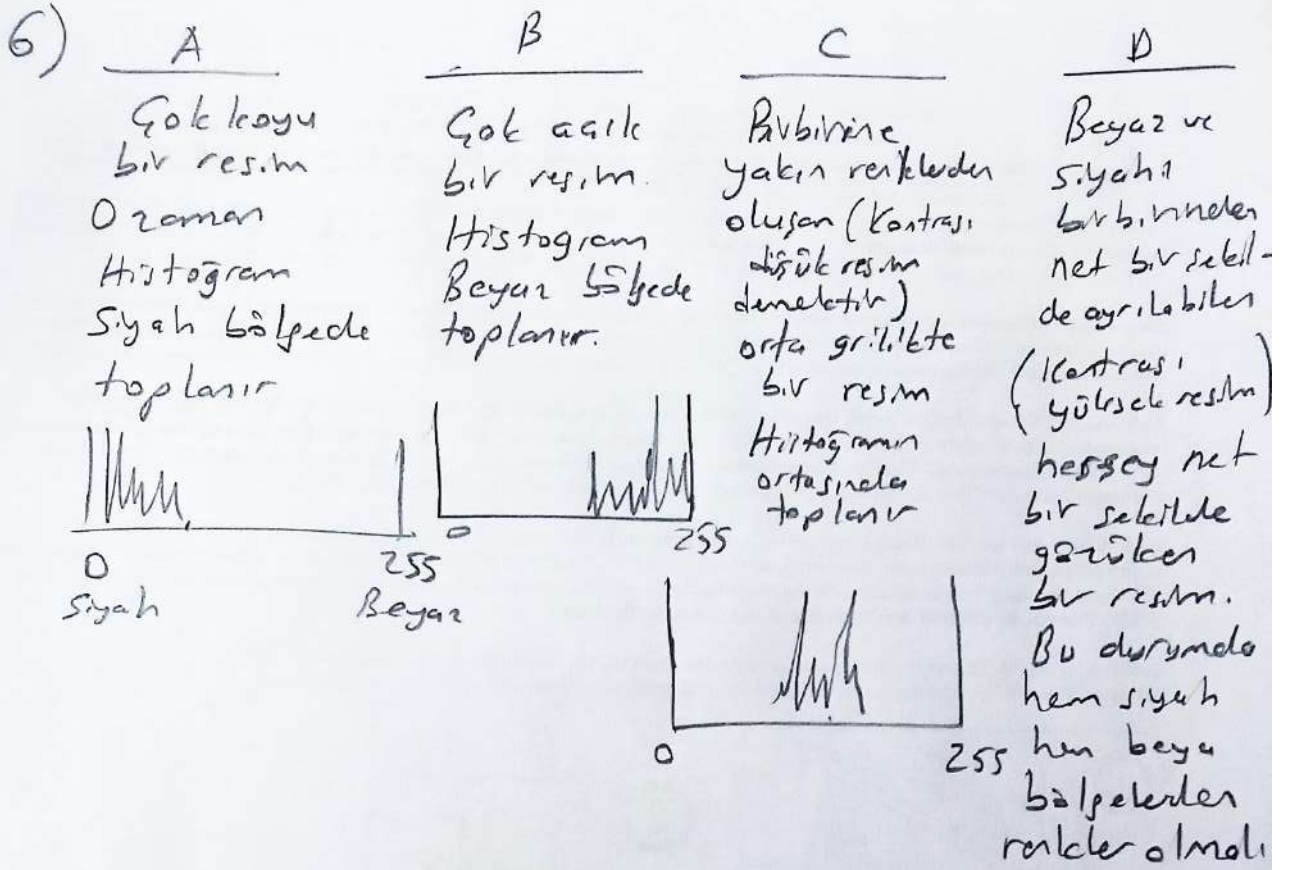 6)
A
Çok koyu
bir resim
O zaman
Histogram
Siyah bölgede
toplanır
0
255
Siyah
Beyaz
B
Çok açık
bir resim.
Histogram
Beyaz bölgede
toplanır.
0
255
C
Birbirine
yakın renklerden
oluşan (Kontrası
düşük resim
demektir)
orta grilikte
bir resim
Histogramın
ortasında
toplanır
0
255
D
Beyaz ve
siyahı
birbirinden
net bir şekil-
de ayrılabilen
(Kontrası
yüksek resim)
herşey net
bir şekilde
gözüken
bir resim.
Bu durumda
hem siyah
hem beya
bölgelerden
renkler olmalı